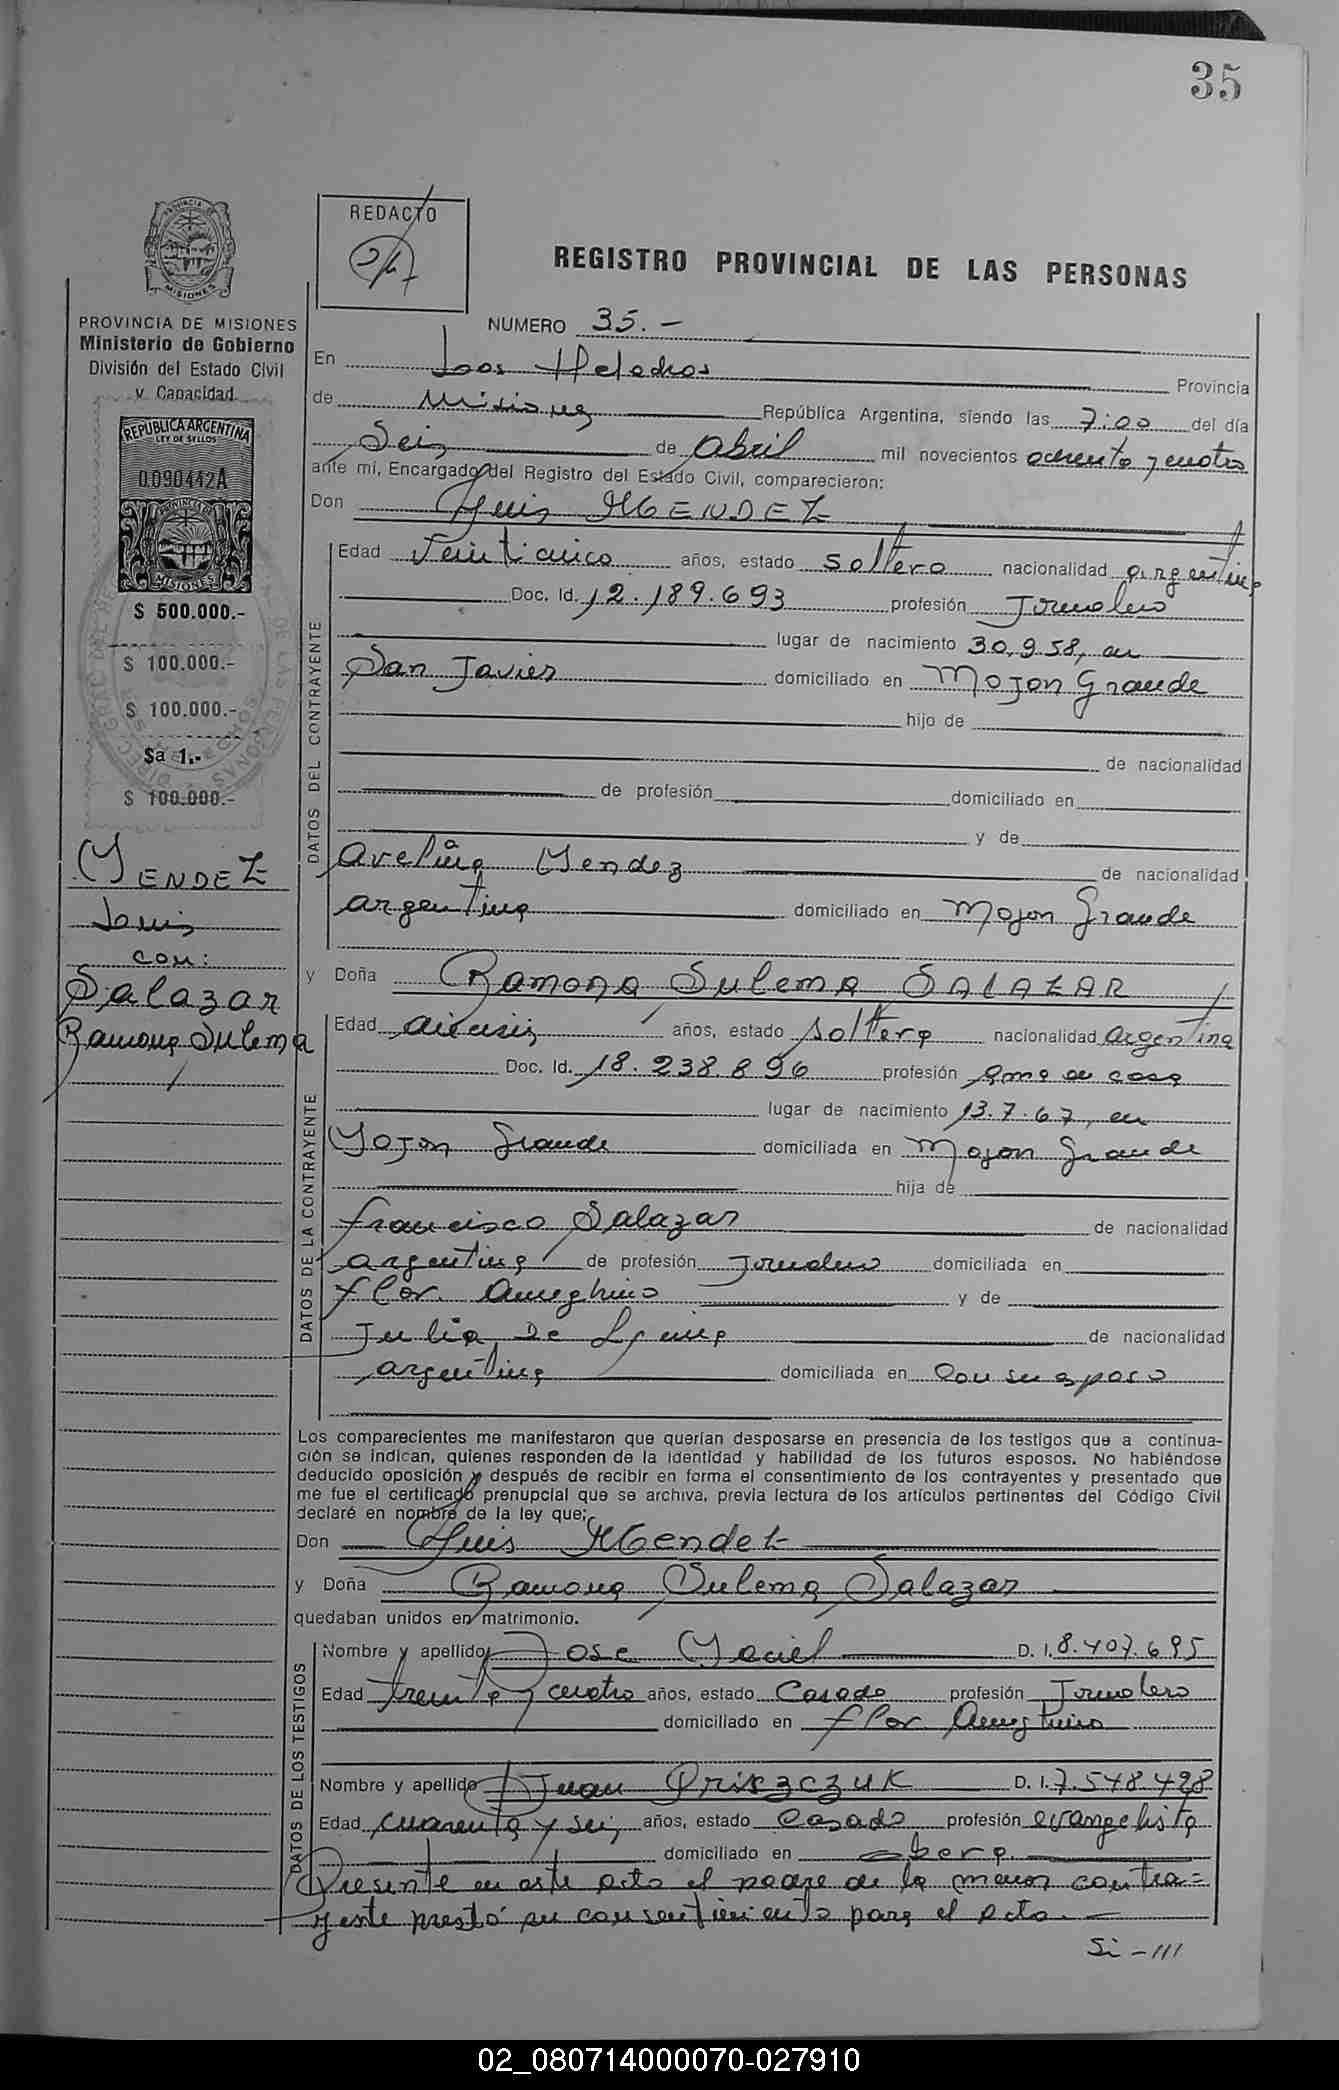 35
REDACTO
REGISTRO PROVINCIAL DE LAS PERSONAS
PROVINCIA DE MISIONES
Ministerio de Gobierno
División del Estado Civil
y Capacidad
REPUBLICA ARGENTINA
LEY DE SELLOS
0.090442A
PROVINCIA DE
MISIONES
$ 500.000.-
$ 100.000.-
$ 100.000.-
$a 1.-
$ 100.000.-
MENDEZ
Luis
con:
Salazar
Ramona Sulema
NUMERO 35.-
En Los Helechos Provincia
de Misiones República Argentina, siendo las 7:00 del día
Seis de Abril mil novecientos ochenta y cuatro
ante mí, Encargado del Registro del Estado Civil, comparecieron:
Don Luis MENDEZ
DATOS DEL CONTRAYENTE
Edad Veinticinco años, estado soltero nacionalidad argentina
Doc. Id. 12.189.693 profesión Jornalero
lugar de nacimiento 30.9.58, en
San Javier domiciliado en Mojon Grande
hijo de
de nacionalidad
de profesión domiciliado en
y de
Avelina Mendez de nacionalidad
argentina domiciliado en Mojon Grande
y Doña Ramona Sulema SALAZAR
DATOS DE LA CONTRAYENTE
Edad dieciseis años, estado soltera nacionalidad Argentina
Doc. Id. 18.238.896 profesión ama de casa
lugar de nacimiento 13.7.67, en
Mojon Grande domiciliada en Mojon Grande
hija de
francisco Salazar de nacionalidad
argentina de profesión Jornalero domiciliada en
flor. Ameghino y de
Julia De Lima de nacionalidad
argentina domiciliada en con su esposo
Los comparecientes me manifestaron que querían desposarse en presencia de los testigos que a continua-
ción se indican, quienes responden de la identidad y habilidad de los futuros esposos. No habiéndose
deducido oposición y después de recibir en forma el consentimiento de los contrayentes y presentado que
me fue el certificado prenupcial que se archiva, previa lectura de los artículos pertinentes del Código Civil
declaré en nombre de la ley que;
Don Luis Mendez
y Doña Ramona Sulema Salazar
quedaban unidos en matrimonio.
DATOS DE LOS TESTIGOS
Nombre y apellido Jose Maciel D. I. 8.407.695
Edad treinta y cuatro años, estado Casado profesión Jornalero
domiciliado en flor Ameghino
Nombre y apellido Juan Priszczuk D. I. 7.548.428
Edad cuarenta y seis años, estado Casado profesión evangelista
domiciliado en obera.
Presente en este acto el padre de la menor contra=
yente prestó su consentimiento para el acto.-
Si-///
02_080714000070-027910